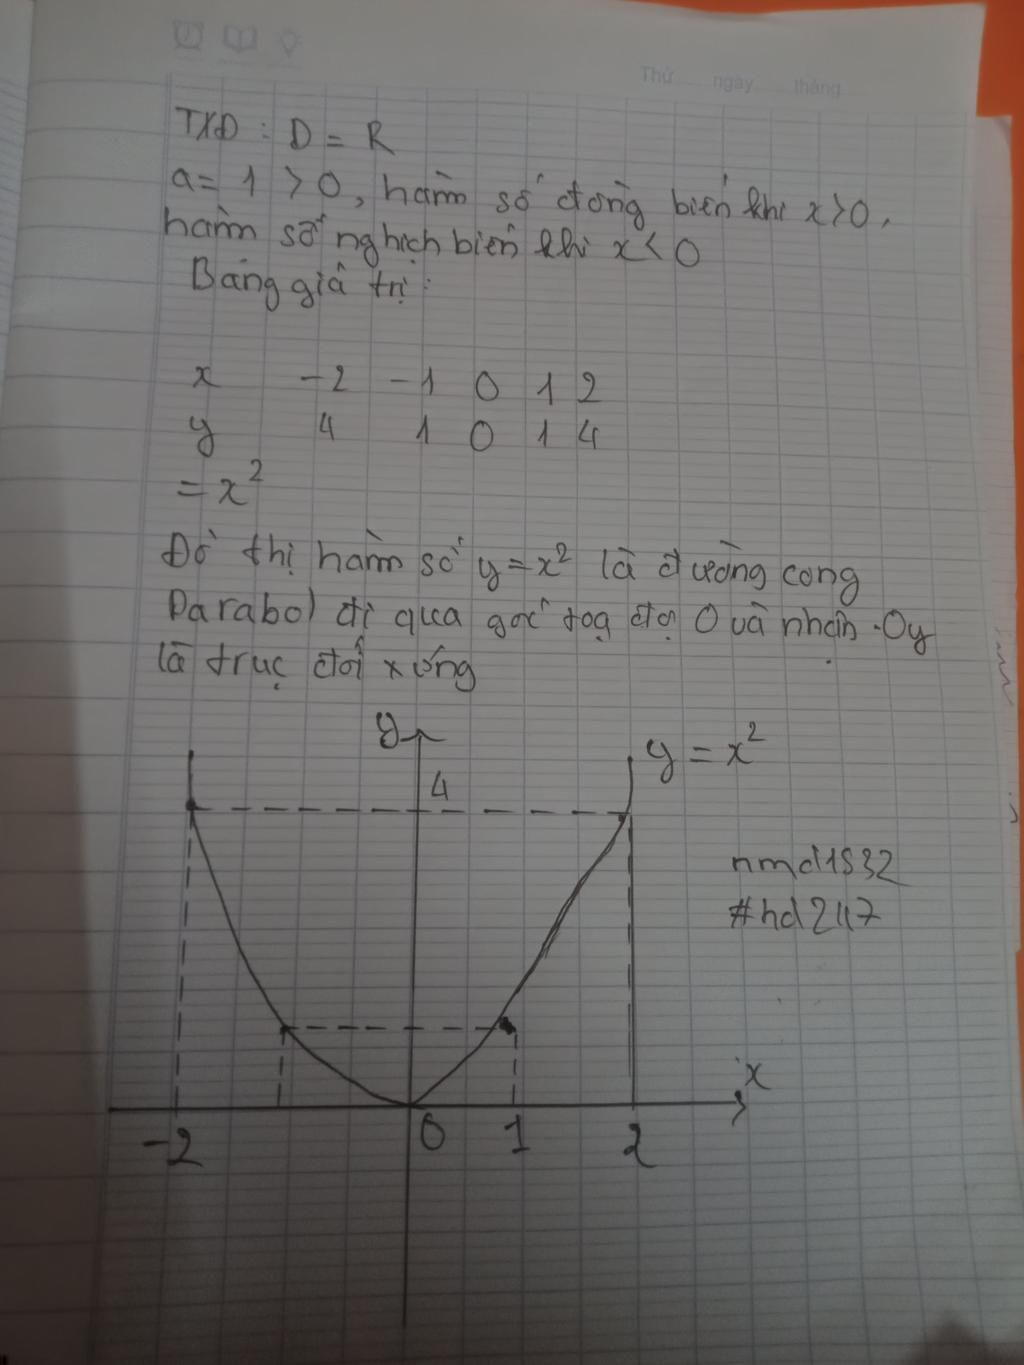 Thứ ngày tháng
TXĐ : D = R
a = 1 > 0, hàm số đồng biến khi x > 0,
hàm số nghịch biến khi x < 0
Bảng giá trị:
x -2 -1 0 1 2
y 4 1 0 1 4
= x²
Đồ thị hàm số y = x² là đường cong
Parabol đi qua gốc toạ độ O và nhận Oy
là trục đối xứng
y
y = x²
4
nmd1832
#hd247
x
-2 0 1 2